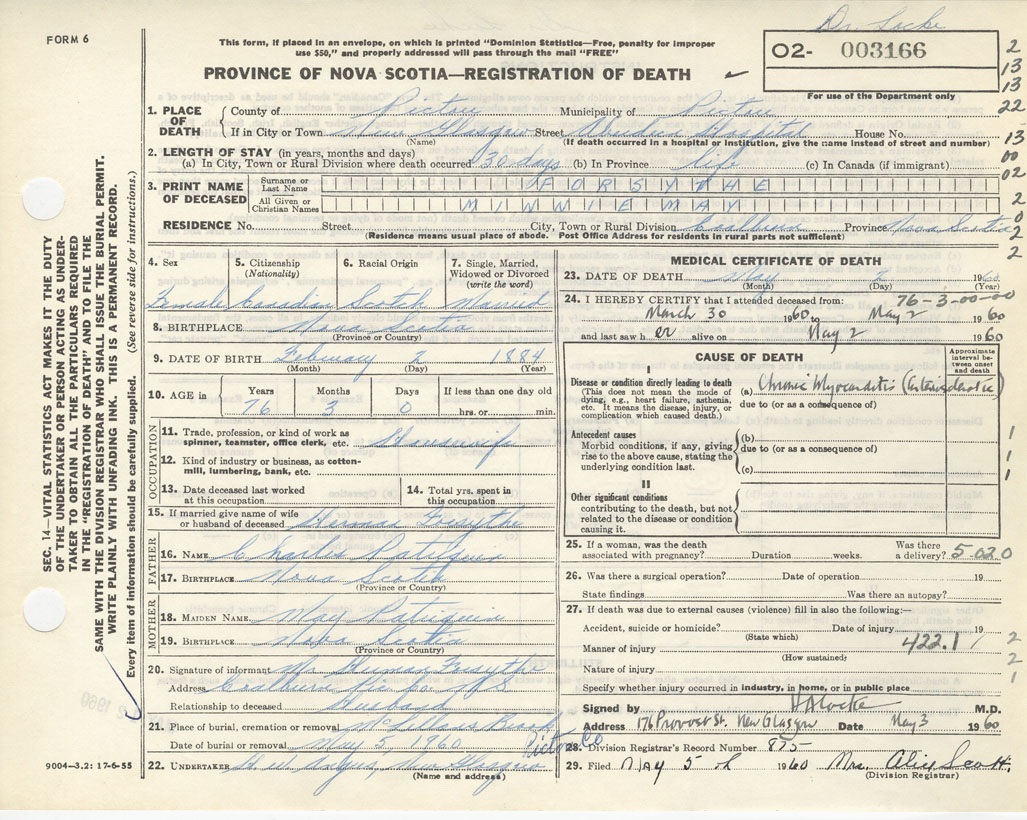 Dr. Locke
FORM 6
This form, if placed in an envelope, on which is printed "Dominion Statistics—Free, penalty for improper
use $50," and properly addressed will pass through the mail "FREE"
02- 003166
For use of the Department only
PROVINCE OF NOVA SCOTIA—REGISTRATION OF DEATH
1. PLACE OF DEATH
County of Pictou Municipality of Pictou
If in City or Town New Glasgow Street Aberdeen Hospital House No.
(Name) (If death occurred in a hospital or institution, give the name instead of street and number)
2. LENGTH OF STAY (in years, months and days)
(a) In City, Town or Rural Division where death occurred 30 days (b) In Province life (c) In Canada (if immigrant)
3. PRINT NAME OF DECEASED
Surname or Last Name FORSYTHE
All Given or Christian Names MINNIE MAY
RESIDENCE No. Street City, Town or Rural Division Coalburn Province Nova Scotia
(Residence means usual place of abode. Post Office Address for residents in rural parts not sufficient)
4. Sex 5. Citizenship (Nationality) 6. Racial Origin 7. Single, Married, Widowed or Divorced (write the word)
Female Canadian Scotch Married
8. BIRTHPLACE Nova Scotia
(Province or Country)
9. DATE OF BIRTH February 2 1884
(Month) (Day) (Year)
10. AGE in Years Months Days If less than one day
76 3 0 hrs. or min.
OCCUPATION
11. Trade, profession, or kind of work as
spinner, teamster, office clerk, etc. Housewife
12. Kind of industry or business, as cotton-
mill, lumbering, bank, etc.
13. Date deceased last worked at this occupation
14. Total yrs. spent in this occupation
15. If married give name of wife
or husband of deceased Herman Forsythe
FATHER
16. NAME Charles Patriquin
17. BIRTHPLACE Nova Scotia
(Province or Country)
MOTHER
18. MAIDEN NAME May Patriquin
19. BIRTHPLACE Nova Scotia
(Province or Country)
20. Signature of informant Mr Herman Forsythe
Address Coalburn
Relationship to deceased Husband
21. Place of burial, cremation or removal McLellans Brook
Pictou Co
Date of burial or removal May 5, 1960
22. UNDERTAKER Angus, New Glasgow
(Name and address)
9004—3.2: 17-6-55
MEDICAL CERTIFICATE OF DEATH
23. DATE OF DEATH May 2 1960
(Month) (Day) (Year)
76-3-00-00
24. I HEREBY CERTIFY that I attended deceased from:
March 30 1960 to May 2 1960
and last saw her alive on May 2 1960
CAUSE OF DEATH
Approximate interval between onset and death
I
Disease or condition directly leading to death
(This does not mean the mode of
dying, e.g., heart failure, asthenia,
etc. It means the disease, injury, or
complication which caused death.)
(a) Chronic Myocarditis
due to (or as a consequence of)
Antecedent causes
Morbid conditions, if any, giving
rise to the above cause, stating the
underlying condition last.
(b)
due to (or as a consequence of)
(c)
II
Other significant conditions
contributing to the death, but not
related to the disease or condition
causing it.
25. If a woman, was the death
associated with pregnancy? Duration weeks. Was there a delivery?
5-020
26. Was there a surgical operation? Date of operation 19
State findings Was there an autopsy?
27. If death was due to external causes (violence) fill in also the following:—
Accident, suicide or homicide? Date of injury 19
(State which)
Manner of injury 422.1
(How sustained)
Nature of injury
Specify whether injury occurred in industry, in home, or in public place
Signed by H A Locke M.D.
Address 176 Provost St. New Glasgow Date May 3 1960
28. Division Registrar's Record Number 875
29. Filed May 5th 1960 Mrs. Alice Scott.
(Division Registrar)
SEC. 14—VITAL STATISTICS ACT MAKES IT THE DUTY
OF THE UNDERTAKER OR PERSON ACTING AS UNDER-
TAKER TO OBTAIN ALL THE PARTICULARS REQUIRED
IN THE "REGISTRATION OF DEATH" AND TO FILE THE
SAME WITH THE DIVISION REGISTRAR WHO SHALL ISSUE THE BURIAL PERMIT.
WRITE PLAINLY WITH UNFADING INK. THIS IS A PERMANENT RECORD.
Every item of information should be carefully supplied. (See reverse side for instructions.)
2
13
13
22
13
00
02
2
0
2
2
1
1
1
2
2
1